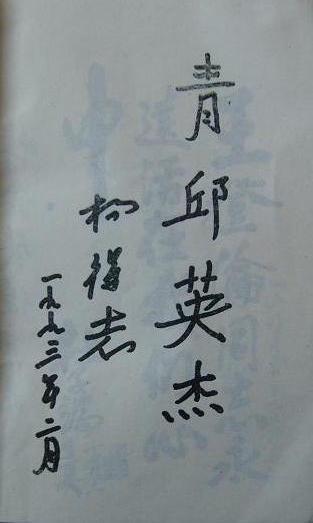 青邱英杰
杨得志
一九九三年二月